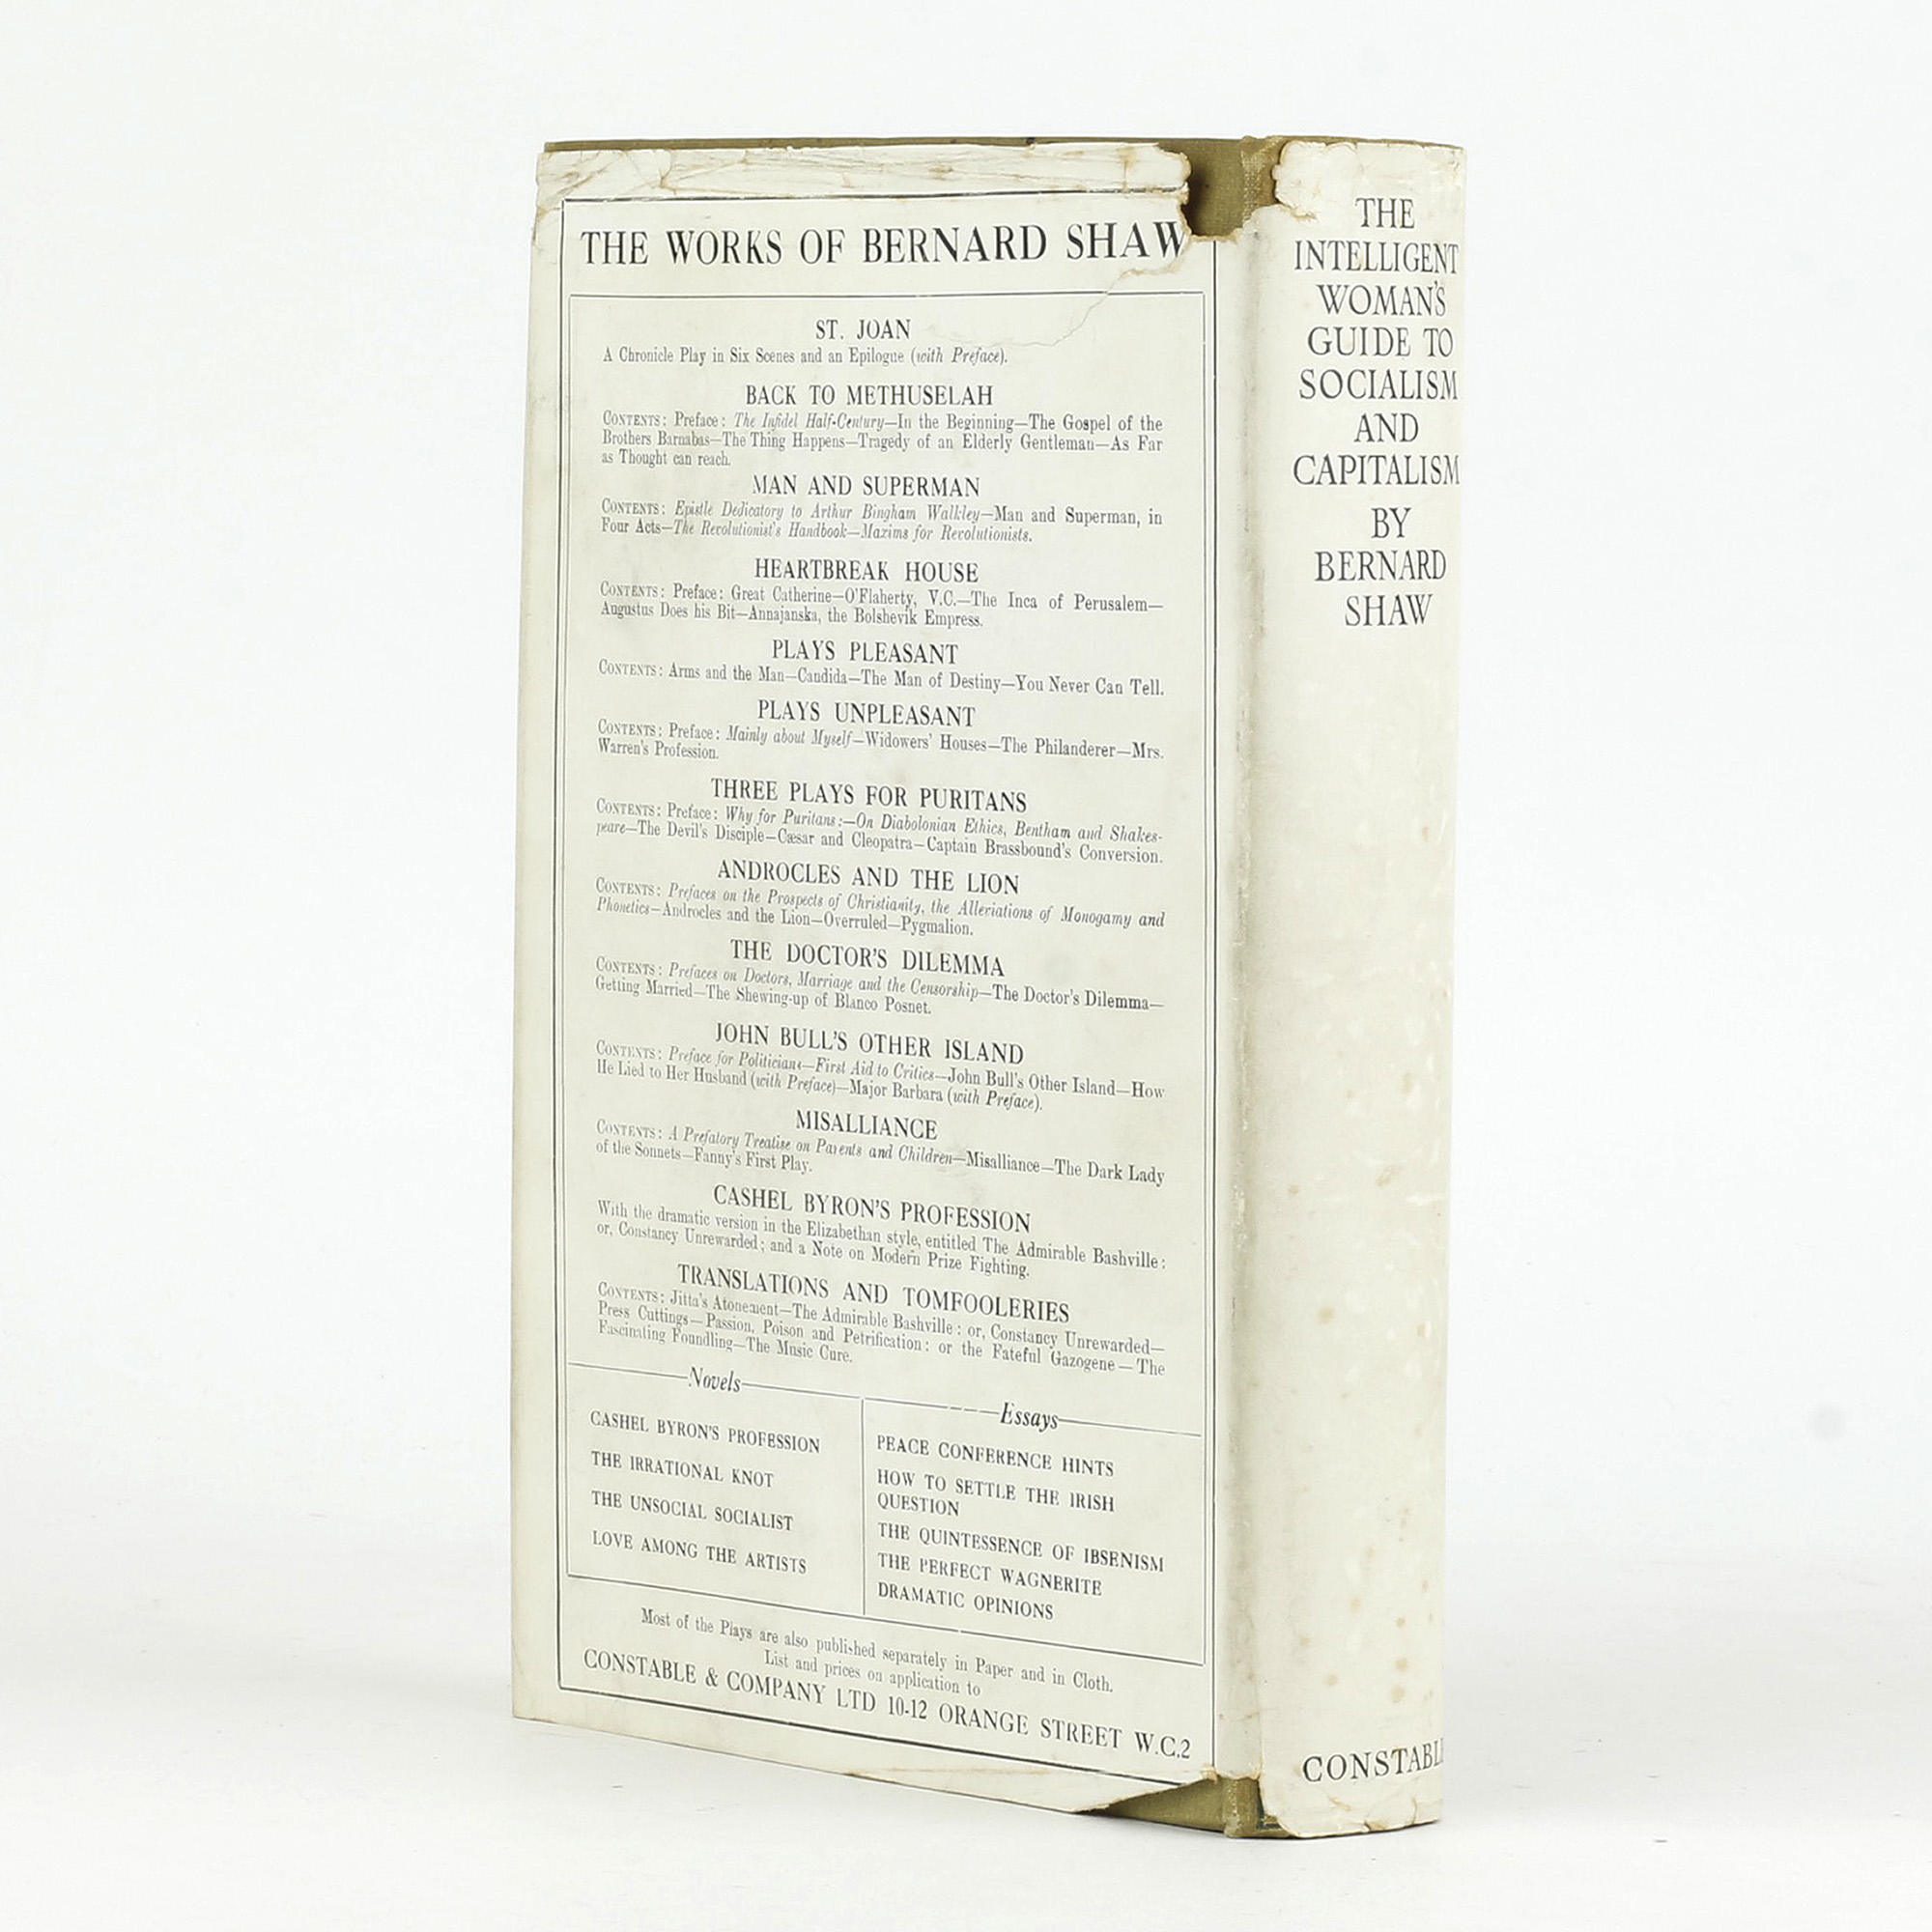 THE WORKS OF BERNARD SHAW
ST. JOAN
A Chronicle Play in Six Scenes and an Epilogue (with Preface).
BACK TO METHUSELAH
CONTENTS: Preface: The Infidel Half-Century—In the Beginning—The Gospel of the
Brothers Barnabas—The Thing Happens—Tragedy of an Elderly Gentleman—As Far
as Thought can reach.
MAN AND SUPERMAN
CONTENTS: Epistle Dedicatory to Arthur Bingham Walkley—Man and Superman, in
Four Acts—The Revolutionist's Handbook—Maxims for Revolutionists.
HEARTBREAK HOUSE
CONTENTS: Preface: Great Catherine—O'Flaherty, V.C.—The Inca of Perusalem—
Augustus Does his Bit—Annajanska, the Bolshevik Empress.
PLAYS PLEASANT
CONTENTS: Arms and the Man—Candida—The Man of Destiny—You Never Can Tell.
PLAYS UNPLEASANT
CONTENTS: Preface: Mainly about Myself—Widowers' Houses—The Philanderer—Mrs.
Warren's Profession.
THREE PLAYS FOR PURITANS
CONTENTS: Preface: Why for Puritans:—On Diabolonian Ethics, Bentham and Shakes-
peare—The Devil's Disciple—Cæsar and Cleopatra—Captain Brassbound's Conversion.
ANDROCLES AND THE LION
CONTENTS: Prefaces on the Prospects of Christianity, the Alleviations of Monogamy and
Phonetics—Androcles and the Lion—Overruled—Pygmalion.
THE DOCTOR'S DILEMMA
CONTENTS: Prefaces on Doctors, Marriage and the Censorship—The Doctor's Dilemma—
Getting Married—The Shewing-up of Blanco Posnet.
JOHN BULL'S OTHER ISLAND
CONTENTS: Preface for Politicians—First Aid to Critics—John Bull's Other Island—How
He Lied to Her Husband (with Preface)—Major Barbara (with Preface).
MISALLIANCE
CONTENTS: A Prefatory Treatise on Parents and Children—Misalliance—The Dark Lady
of the Sonnets—Fanny's First Play.
CASHEL BYRON'S PROFESSION
With the dramatic version in the Elizabethan style, entitled The Admirable Bashville:
or, Constancy Unrewarded; and a Note on Modern Prize Fighting.
TRANSLATIONS AND TOMFOOLERIES
CONTENTS: Jitta's Atonement—The Admirable Bashville: or, Constancy Unrewarded—
Press Cuttings—Passion, Poison and Petrification: or the Fateful Gazogene—The
Fascinating Foundling—The Music Cure.
Novels
CASHEL BYRON'S PROFESSION
THE IRRATIONAL KNOT
THE UNSOCIAL SOCIALIST
LOVE AMONG THE ARTISTS
Essays
PEACE CONFERENCE HINTS
HOW TO SETTLE THE IRISH
QUESTION
THE QUINTESSENCE OF IBSENISM
THE PERFECT WAGNERITE
DRAMATIC OPINIONS
Most of the Plays are also published separately in Paper and in Cloth.
List and prices on application to
CONSTABLE & COMPANY LTD 10-12 ORANGE STREET W.C.2
THE
INTELLIGENT
WOMAN'S
GUIDE TO
SOCIALISM
AND
CAPITALISM
BY
BERNARD
SHAW
CONSTABLE